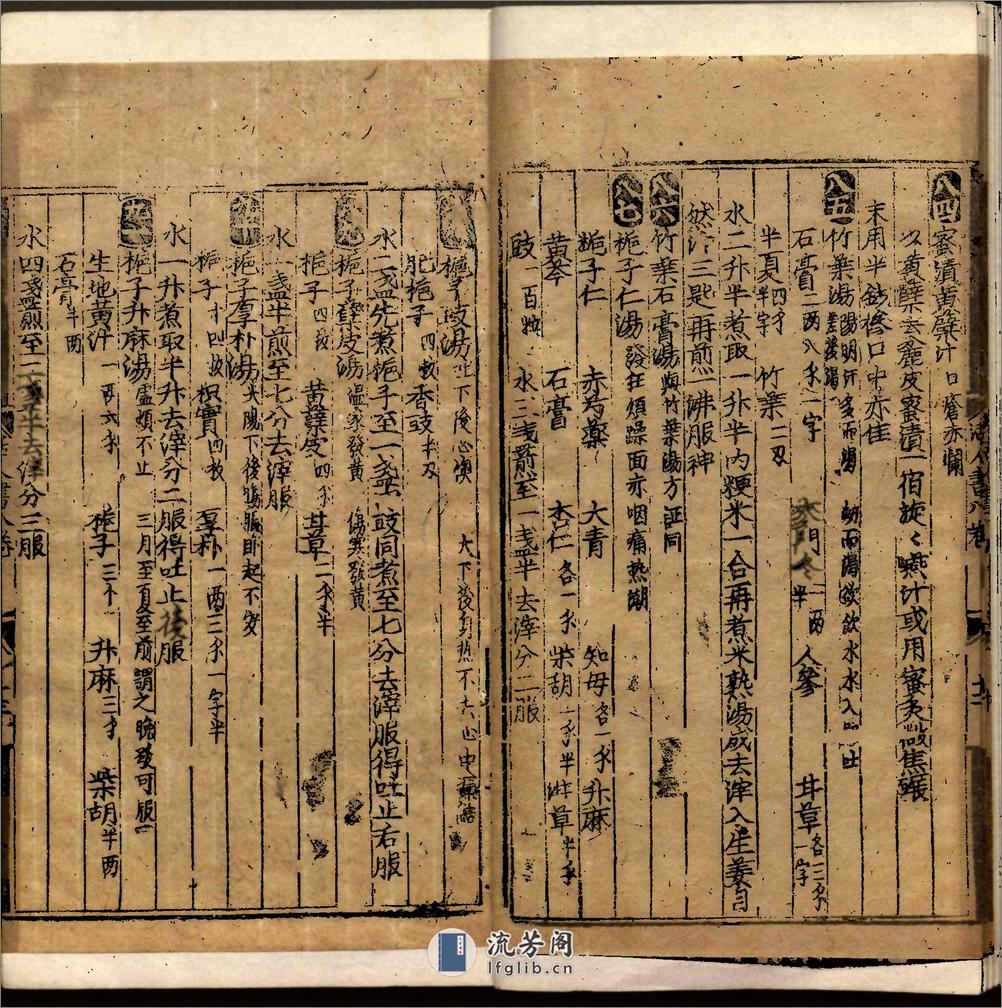 八四
蜜漬黃蘗汁 口瘡赤爛
黃蘗去麄皮蜜漬一宿旋〻嚥汁或用蜜炙微焦碾
末用半錢摻口中亦佳
八五
竹葉湯 陽明汗多而渴 欲飲水水入吐
石膏二兩八錢一字 麥門冬一兩半 人參 甘草各二錢一字
半夏四錢半字 竹葉二刃
水二升半煮取一升半內粳米一合再煮米熟湯成去滓入生姜自
然汁三匙再煎一沸服神
八六
竹葉石膏湯 與竹葉湯方証同
八七
梔子仁湯 發狂煩躁面赤咽痛熱潮
梔子仁 赤芍藥 大青 知母各一錢 升麻
黃芩 石膏 杏仁各一錢 柴胡一錢半 甘草半錢
豉一百粒 水三盞煎至一盞半去滓分二服
梔子豉湯 吐下後心懊 大下後身熱不去心中
肥梔子四枚 香豉半刃
水二盞先煮梔子至一盞 豉同煮至七分去滓服得吐止右服
梔子蘗皮湯 溫家發黃 傷寒發黃
梔子四 黃蘗皮四錢 甘草二錢半
水一盞半煎至七分去滓服
梔子厚朴湯 太陽下後 腹 臥起不安
梔子 四枚 枳實四枚 厚朴一兩三錢一字半
水一升煮取半升去滓分二服得吐止後服
梔子升麻湯 虛煩不止 三月至夏至前謂之晚發可服
生地黃汁一兩六錢 梔子三个 升麻三錢 柴胡半兩
石膏半兩
水四盞煎至二盞半去滓分三服
流芳阁
lfglib.cn